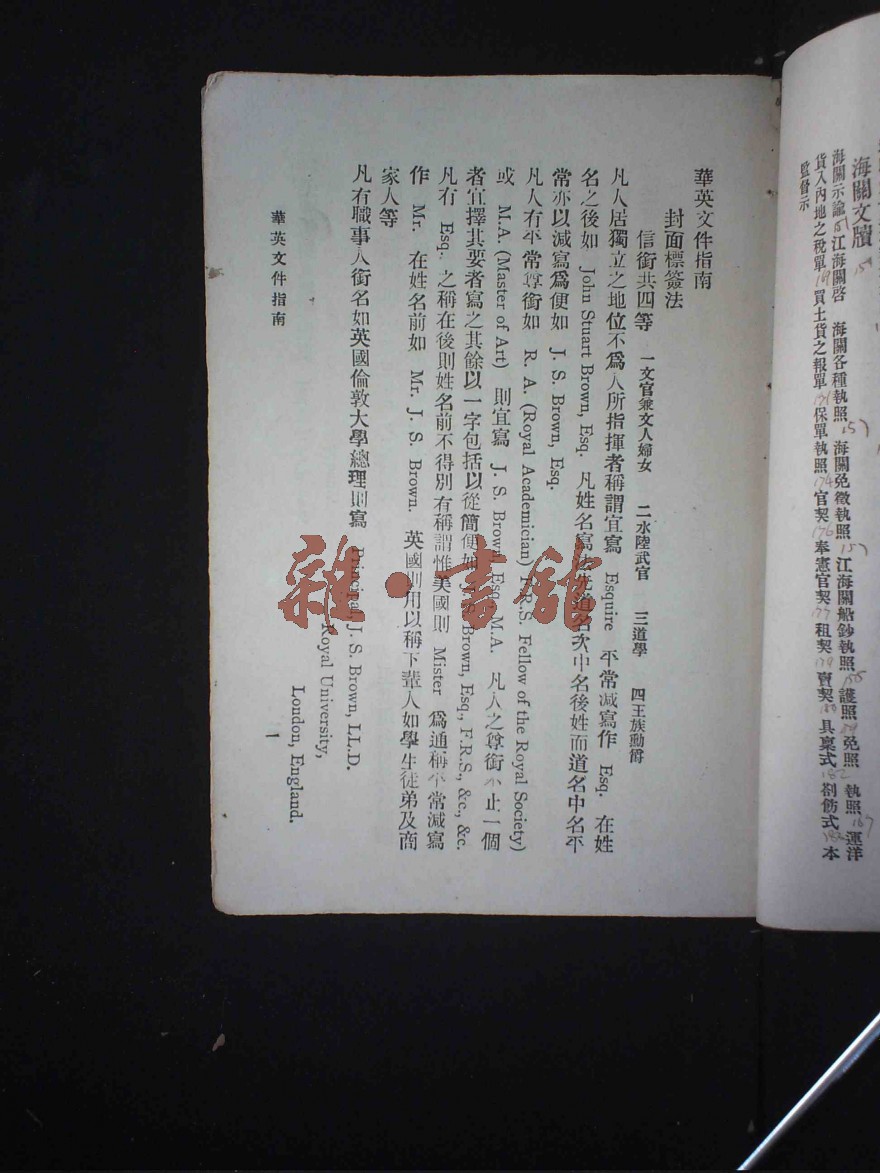 海關文牘
海關示諭 江海關啓 海關各種執照 157 海關免徵執照 157 江海關船鈔執照 155 護照 免照 執照 167 運洋
貨入內地之稅單 169 買土貨之報單 171 保單執照 174 官契 176 奉憲官契 177 租契 179 賣契 180 具稟式 182 劄飭式 182 本
監督示
華英文件指南
封面標簽法
信銜共四等 一文官兼文人婦女 二水陸武官 三道學 四王族勳爵
凡人居獨立之地位不爲人所指揮者稱謂宜寫 Esquire 平常減寫作 Esq. 在姓
名之後如 John Stuart Brown, Esq. 凡姓名寫法先道名次中名後姓而道名中名平
常亦以減寫爲便如 J. S. Brown, Esq.
凡人有平常尊銜如 R. A. (Royal Academician) F.R.S. Fellow of the Royal Society)
或 M.A. (Master of Art) 則宜寫 J. S. Brown, Esq., M.A. 凡人之尊銜不止一個
者宜擇其要者寫之其餘以一字包括以從簡便如 J. S. Brown, Esq., F.R.S., &c., &c.
凡有 Esq. 之稱在後則姓名前不得別有稱謂惟美國則 Mister 爲通稱平常減寫
作 Mr. 在姓名前如 Mr. J. S. Brown. 英國則用以稱下輩人如學生徒弟及商
家人等
凡有職事人銜名如英國倫敦大學總理則寫 Principal, J. S. Brown, LL.D.
Royal University,
London, England.
華英文件指南
1
雜·書館